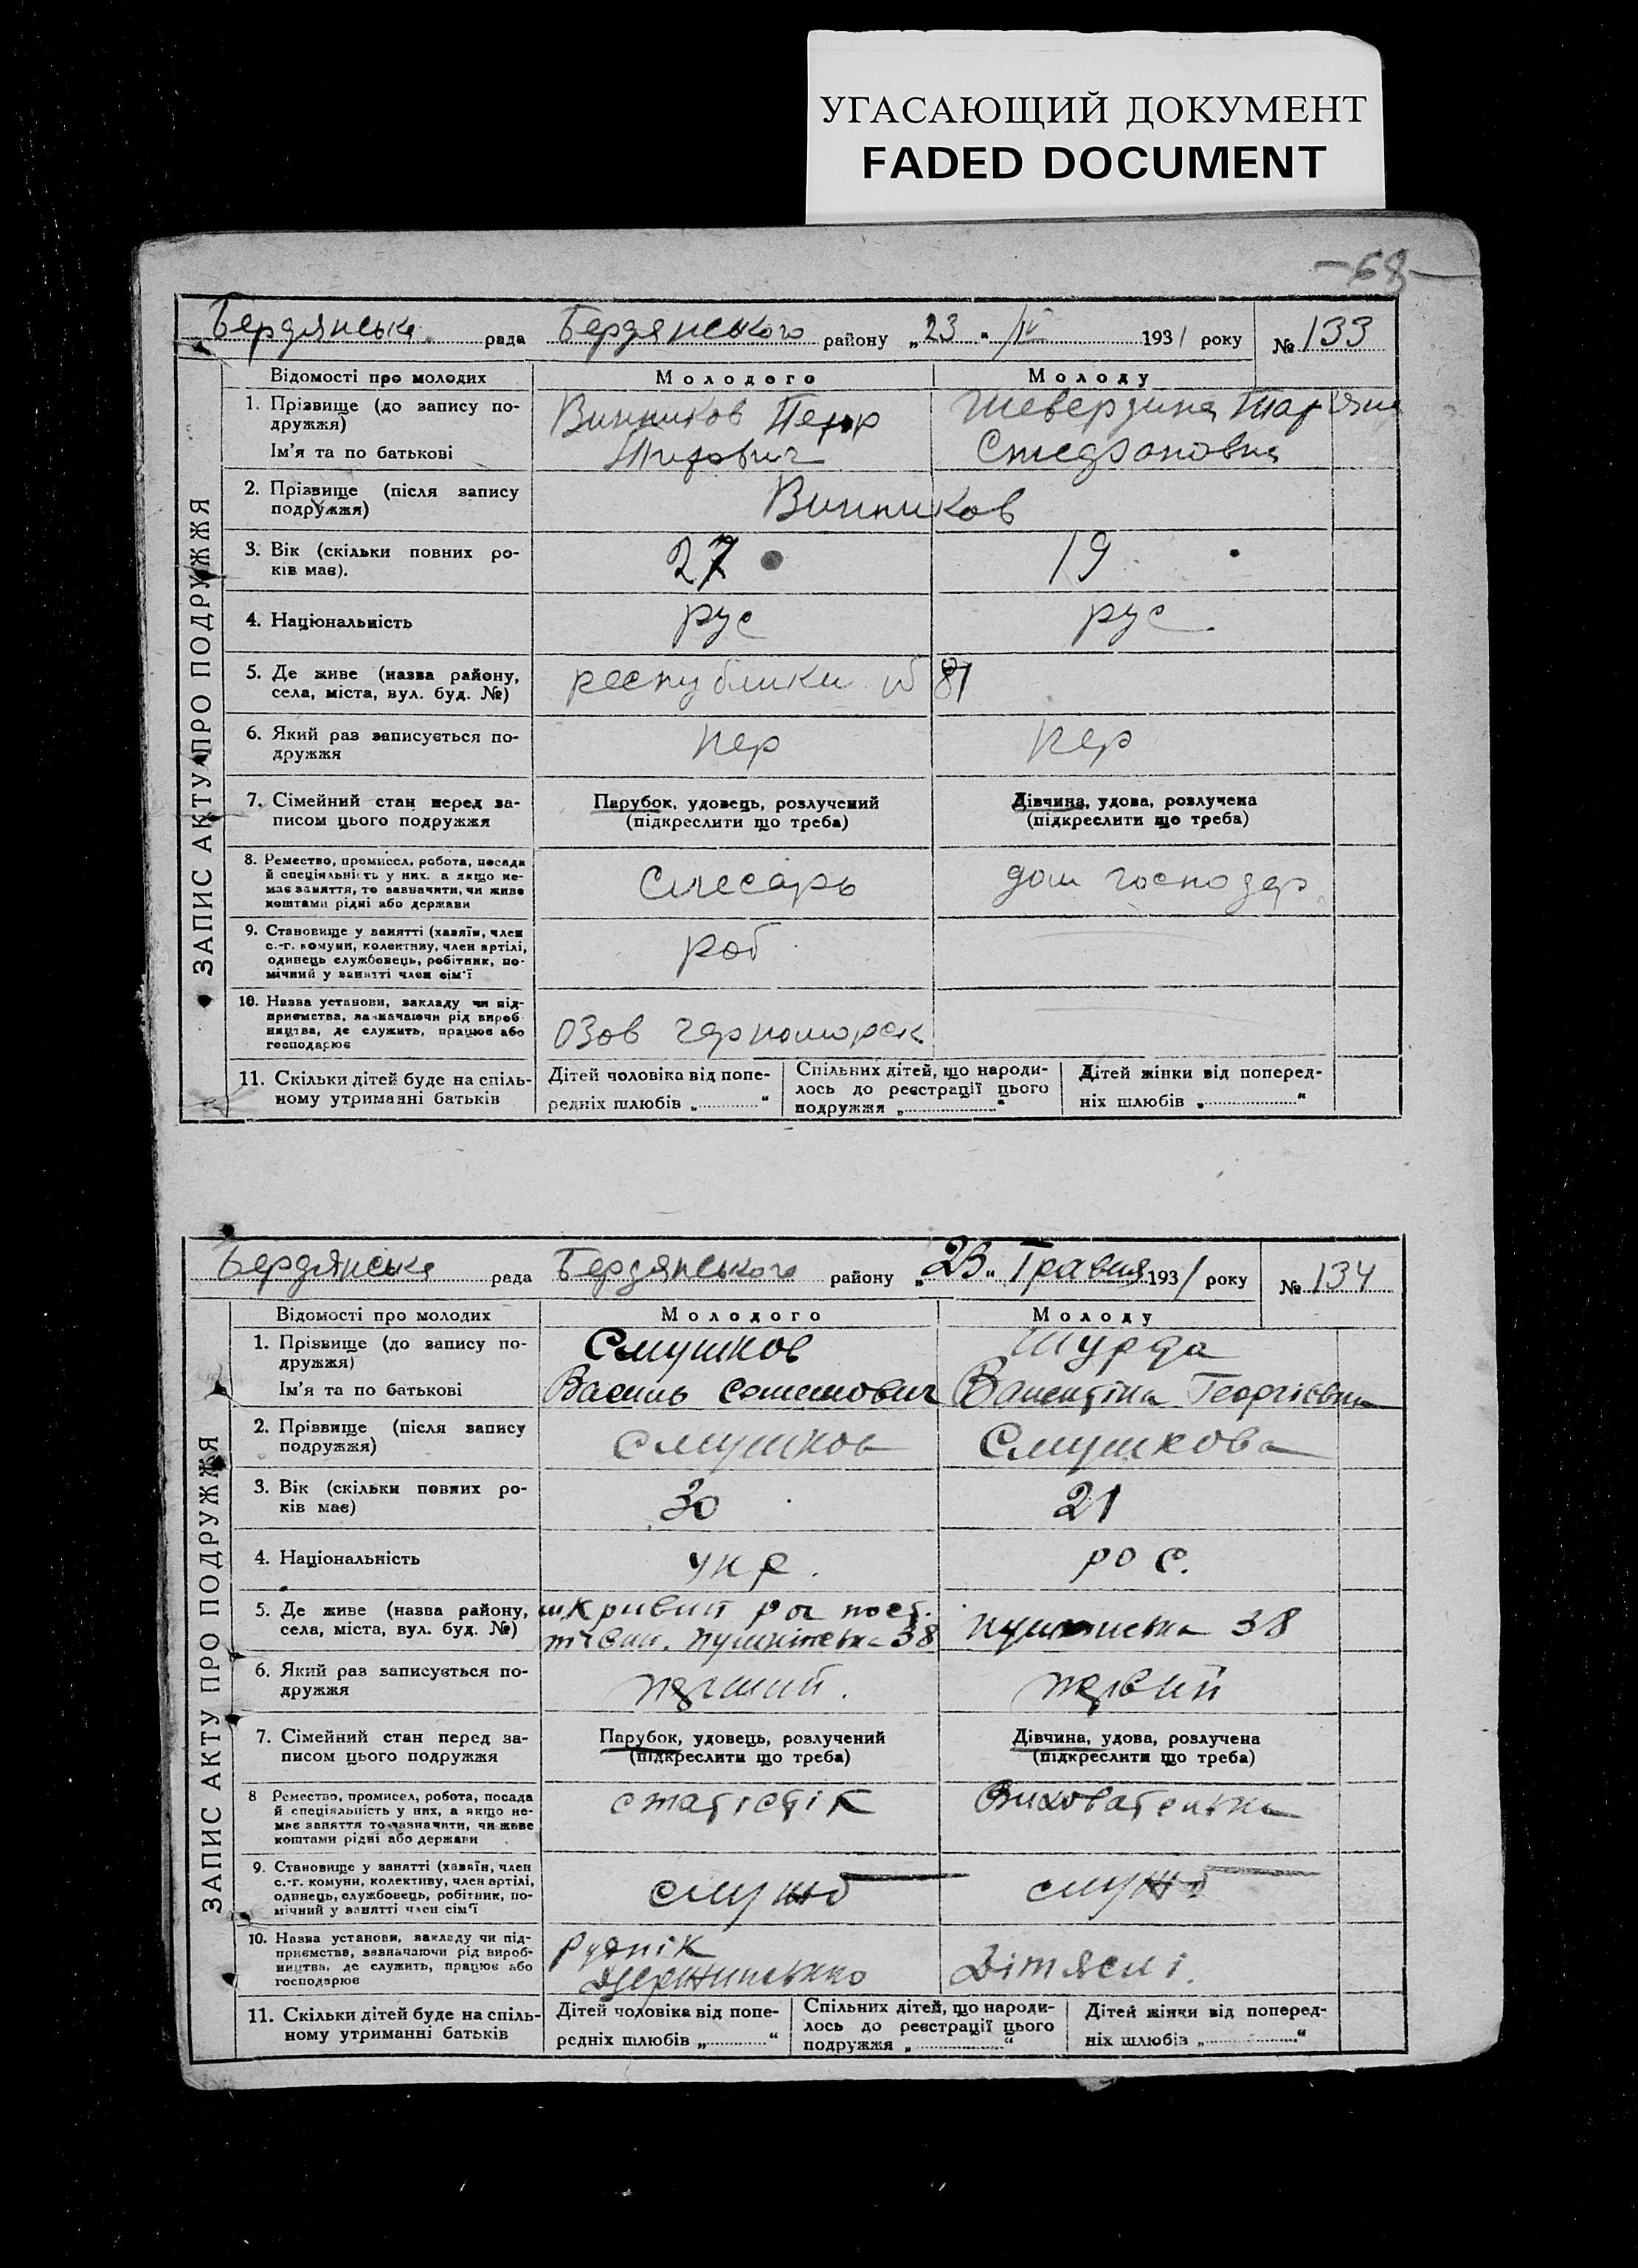 УГАСАЮЩИЙ ДОКУМЕНТ
FADED DOCUMENT
—68—
Бердянська рада Бердянського району „23 “ /IV 1931 року № 133
Відомості про молодих Молодого Молоду
1. Прізвище (до запису по-
дружжя)
Ім'я та по батькові
Винников Петр
Титович
Шевердина
Стефановна
2. Прізвище (після запису
подружжя)
Винников
3. Вік (скільки повних ро-
ків має).
27 19
4. Національність
рус рус
5. Де живе (назва району,
села, міста, вул. буд. №)
республики 81
6. Який раз записується по-
дружжя
пер пер
7. Сімейний стан перед за-
писом цього подружжя
Парубок, удовець, розлучений
(підкреслити що треба)
Дівчина, удова, розлучена
(підкреслити що треба)
8. Ремество, промисел, робота, посада
й спеціяльність у них, а якщо не-
має заняття, то зазначити, чи живе
коштами рідні або держави
Слесарь дом господар
9. Становище у занятті (хазяїн, член
с.-г. комуни, колективу, член артілі,
одинець службовець, робітник, по-
мічний у занятті член сім'ї
роб
10. Назва установи, закладу чи під-
приємства, зазначаючи рід вироб-
ництва, де служить, працює або
господарює
Озов черноморск
11. Скільки дітей буде на спіль-
ному утриманні батьків
Дітей чоловіка від попе-
редніх шлюбів „ “
Спільних дітей, що народи-
лось до реєстрації цього
подружжя „ “
Дітей жінки від поперед-
ніх шлюбів „ “
ЗАПИС АКТУ ПРО ПОДРУЖЖЯ
Бердянська рада Бердянського району „23“ Травня 1931 року № 134
Відомості про молодих Молодого Молоду
1. Прізвище (до запису по-
дружжя)
Ім'я та по батькові
Смушков
Василь Семенович
Шурда
Валентіна Георгієвна
2. Прізвище (після запису
подружжя)
Смушков Смушкова
3. Вік (скільки повних ро-
ків має)
30 21
4. Національність
укр. рос.
5. Де живе (назва району,
села, міста, вул. буд. №)
м. Кривий ріг
пушкінська 38
пушкінська 38
6. Який раз записується по-
дружжя
перший. первий
7. Сімейний стан перед за-
писом цього подружжя
Парубок, удовець, розлучений
(підкреслити що треба)
Дівчина, удова, розлучена
(підкреслити що треба)
8 Ремество, промисел, робота, посада
й спеціяльність у них, а якщо не-
має заняття то зазначити, чи живе
коштами рідні або держави
статістік Вихователька
9. Становище у занятті (хазяїн, член
с.-г. комуни, колективу, член артілі,
одинець, службовець, робітник, по-
мічний у занятті член сім'ї
служб служб
10. Назва установи, закладу чи під-
приємства, зазначаючи рід вироб-
ництва, де служить, працює або
господарює
Руднік
Дзержинського
Дітяслі.
11. Скільки дітей буде на спіль-
ному утриманні батьків
Дітей чоловіка від попе-
редніх шлюбів „ “
Спільних дітей, що народи-
лось до реєстрації цього
подружжя „ “
Дітей жінки від поперед-
ніх шлюбів „ “
ЗАПИС АКТУ ПРО ПОДРУЖЖЯ